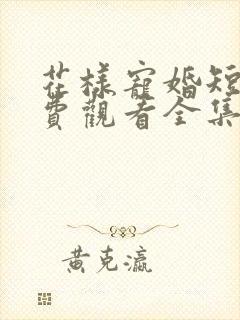 花樣寵婚短
費觀看全集
黃克瀛